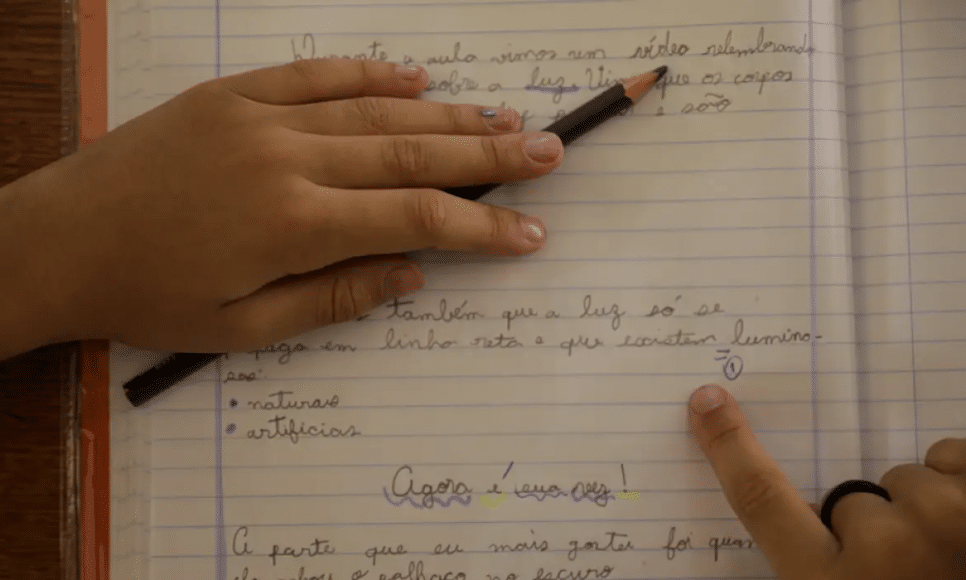 Durante a aula vimos um vídeo relembrando
sobre a luz. que os corpos
são
também que a luz só se
em linha reta e que existem lumino-
sos:
• naturais
• artificias
= ①
Agora é sua vez!
A parte que eu mais gostei foi
o palhaço no escuro